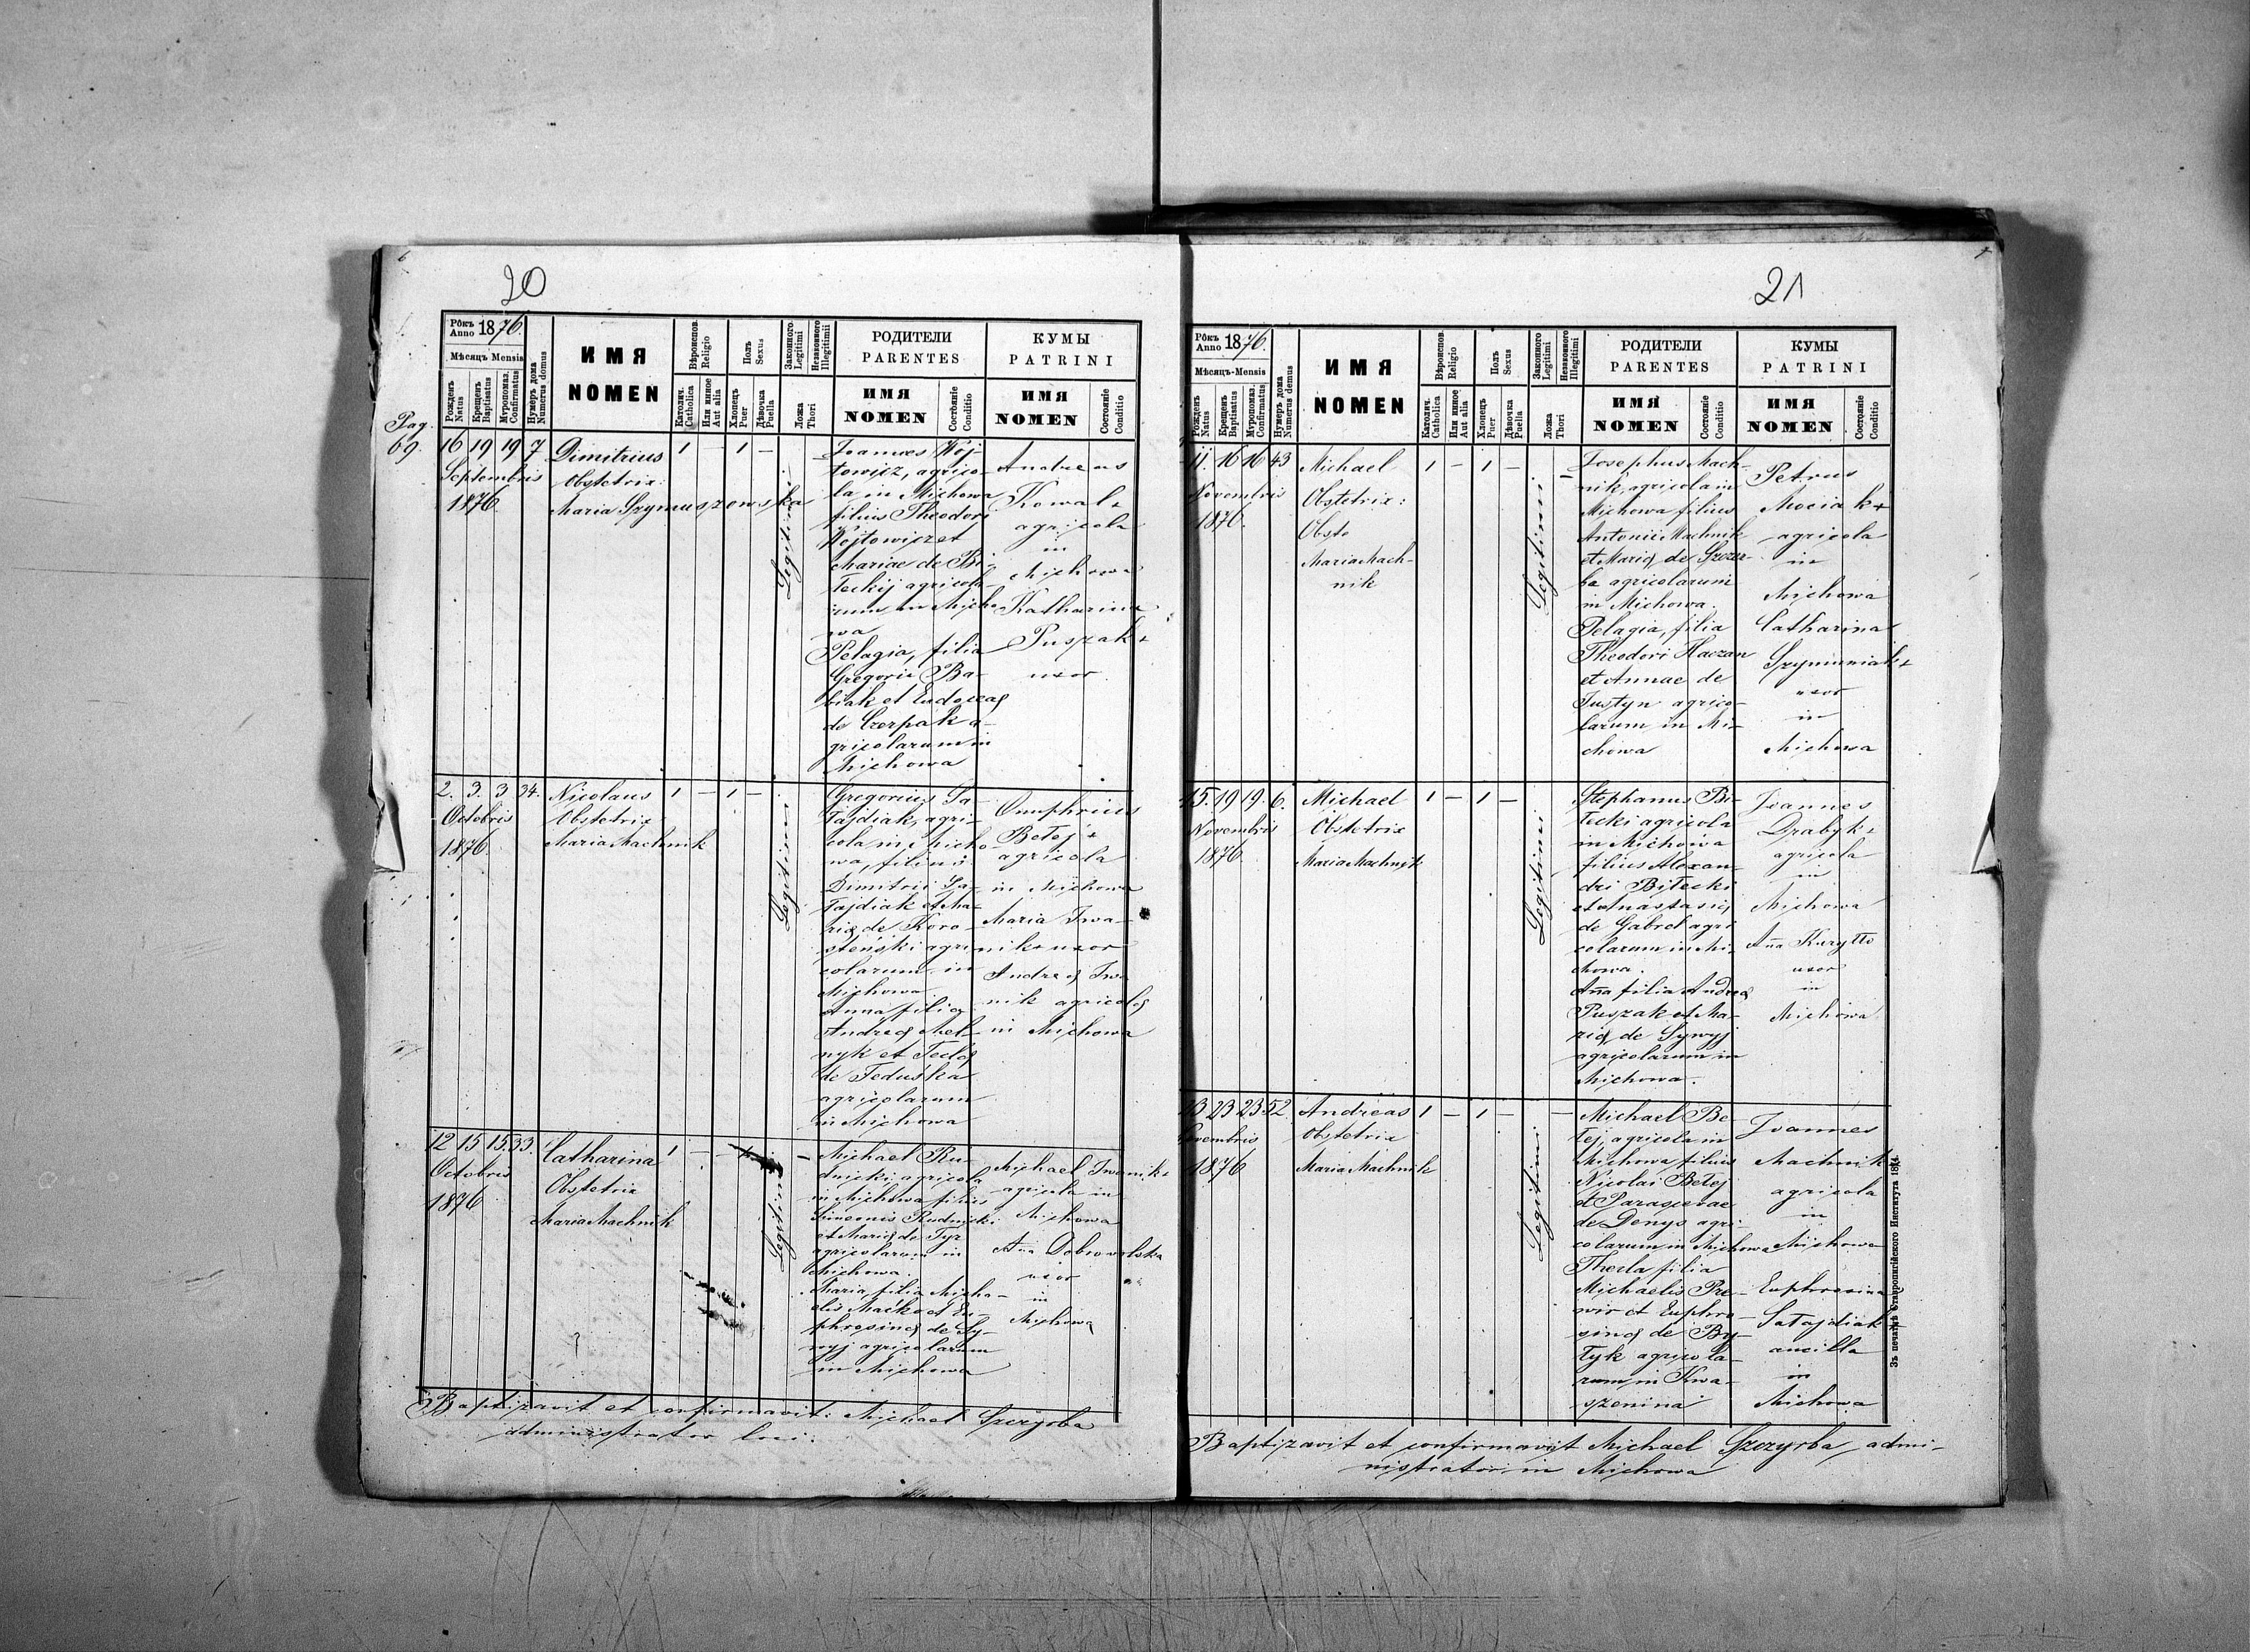 20
Рôкъ Anno 1876.
Мѣсяць Mensis
Рожденъ Natus
Крещенъ Baptisatus
Мѵропомаз. Confirmatus
Нумеръ дома Numerus domus
ИМЯ
NOMEN
Вѣроиспов. Religio
Католич. Catholica
Или иное Aut alia
Полъ Sexus
Хлопець Puer
Дѣвочка Puella
Законного Legitimi
Незаконного Illegitimi
Ложа Thori
РОДИТЕЛИ
PARENTES
ИМЯ
NOMEN
Состояніе Conditio
КУМЫ
PATRINI
ИМЯ
NOMEN
Состояніе Conditio
Pag.
69.
16 19 19 7
Septembris
1876.
Dimitrius
Obstetrix:
Maria Szymuszowska
1 — 1 —
Legitimi
Joannes Woj-
towicz, agrico-
la in Michowa
filius Theodori
Wojtowicz et
Mariae de Bi-
łeckij agricola-
rum in Micho-
wa
Pelagia, filia
Gregorii Ba-
biak et Eudoxeae
de Czerpak a-
gricolarum in
Michowa
Andreas
Kowal +
agricola
in
Michowa
Katharina
Puszak +
uxor
2. 3. 3 34.
Octobris
1876.
Nicolaus
Obstetrix
Maria Machnik
1 — 1 —
Legitimi
Gregorius Sa-
łajdiak, agri-
cola in Micho-
wa, filius
Dimitrii Sa-
łajdiak et Ma-
riae de Koro-
steński agri-
colarum in
Michowa
Anna filia
Andreae Mel-
nyk et Teclae
de Feduśka
agricolarum
in Michowa
Onuphrius
Betej +
agricola
in Michowa
Maria Iwa-
nik + uxor
Andreae Iwa
nik agricolae
in Michowa
12 15 15. 33.
Octobris
1876
Catharina
Obstetrix
Maria Machnik
1 — —
Legitimi
Michael Ru-
dnicki, agricola
in Michowa filius
Simeonis Rudnicki
et Mariae de Tyz
agricolarum in
Michowa.
Maria, filia Micha-
elis Maćko et Eu-
phrosinae de Sy-
wyj agricolarum
in Michowa
Michael Iwanik +
agricola in
Michowa
Anna Dobrowolska
uxor
in
Michowa
Baptizavit et confirmavit: Michael Szczyrba
administrator loci.
21
Рôкъ Anno 1876.
Мѣсяць-Mensis
Рожденъ Natus
Крещенъ Baptisatus
Мѵропомаз. Confirmatus
Нумеръ дома Numerus domus
ИМЯ
NOMEN
Вѣроиспов. Religio
Католич. Catholica
Или иное Aut alia
Полъ Sexus
Хлопець Puer
Дѣвочка Puella
Законного Legitimi
Незаконного Illegitimi
Ложа Thori
РОДИТЕЛИ
PARENTES
ИМЯ
NOMEN
Состояніе Conditio
КУМЫ
PATRINI
ИМЯ
NOMEN
Состояніе Conditio
11. 16 16 43
Novembris
1876.
Michael
Obstetrix:
Obste
Maria Mach-
nik
1 — 1 —
Legitimi
Josephus Mach-
nik, agricola in
Michowa filius
Antonii Machnik
et Mariae de Szczer-
ba agricolarum
in Michowa.
Pelagia, filia
Theodori Haczan
et Annae de
Justyn agrico-
larum in Mi-
chowa
Petrus
Mociak +
agricola
in
Michowa
Catharina
Szymuniak +
uxor
in
Michowa
15. 19 19. 6.
Novembris
1876
Michael
Obstetrix
Maria Machnik
1 — 1 —
Legitimi
Stephanus Bi-
łecki agricola
in Michowa
filius Alexan-
dri Biłecki
et Anastasiae
de Gabrel agri
colarum in Mi-
chowa.
Anna filia Andreae
Puszak et Ma-
riae de Sywyj
agricolarum in
Michowa.
Joannes
Drabyk +
agricola
in
Michowa
Anna Kuryłło
uxor
in
Michowa
23 23 52
Novembris
1876
Andreas
Obstetrix
Maria Machnik
1 — 1 —
Legitimi
Michael Be-
tej, agricola in
Michowa filius
Nicolai Betej
et Parascevae
de Denys agri-
colarum in Michowa
Thecla filia
Michaelis Pre-
wir et Euphro-
sinae de By-
łyk agricola-
rum in Kwa-
szenina
Joannes
Machnik
agricola
in
Michowa
Euphrosina
Sałajdiak
ancilla
in
Michowa
Baptizavit et confirmavit Michael Szczyrba, admi-
nistrator in Michowa
Зъ печатнѣ Ставропигійского Института 1874.